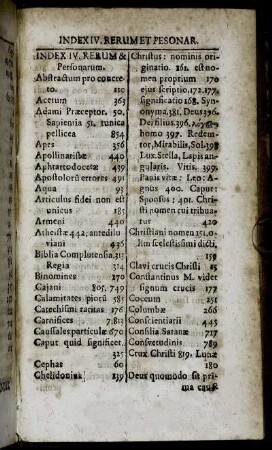 INDEX IV. RERUM ET PESONAR.
INDEX IV. RERUM &
Personarum.
Abstractum pro concre-
to. 110
Acetum 363
Adami Præceptor. 50.
Sapientia 51. tunica
pellicea 854
Apes 356
Apollinaristæ 440
Aphtartodocetæ 439
Apostolorũ errores 491
Aqua 93
Articulus fidei non est
unicus 185
Armeni 440
Atheistæ 442. antedilu
viani 436
Biblia Complutensia.31
Regia 314
Binomines 170
Cajani 805. 749
Calamitates piorũ 585
Catechismi raritas 176
Carnifices 7.813
Causales particulæ 670
Caput quid significet.
325
Cephas 60
Chelidonius 139
Christus: nominis ori-
ginatio. 161. est no-
men proprium 170
ejus scriptio. 172. 177.
significatio 168. Syn-
onyma. 381. Deus 396.
Dei filius. 396,
homo 397. Redem-
tor, Mirabilis, Sol. 398
Lux. Stella, Lapis an-
gularis. Vitis. 399.
Panis vitæ: Leo: A-
gnus 400. Caput:
Sponsus: 401. Chri-
sti nomen cui tribua-
tur 420
Christiani nomen 151. o-
lim scelestissimi dicti,
159
Clavi crucis Christi 15
Constantinus M. videt
signum crucis 177
Coccum 251
Columbæ 266
Conscientiarii 445
Consilia Saranæ 717
Consvetudinis 789
Crux Christi 819. Lunæ
180
Deus quomodo sit pri-
ma caus